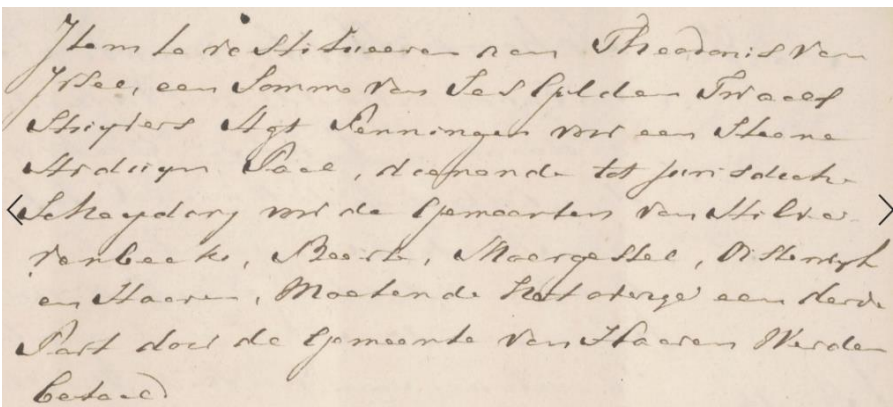 Item te restitueeren aan Theodonis van
Irsee, een Somme van Ses Gulden Twaelf
Stuyvers Agt Penningen voor een Steene
Arduyn Pael, dienende tot jurisdictie
Schaydong voor de Gemeenten van Hilva-
renbeeke, Beerts, Moergestel, Oisterwyk
en Haaren, Moetende het overige een derde
Part door de Gemeente van Haaren Werden
betaald